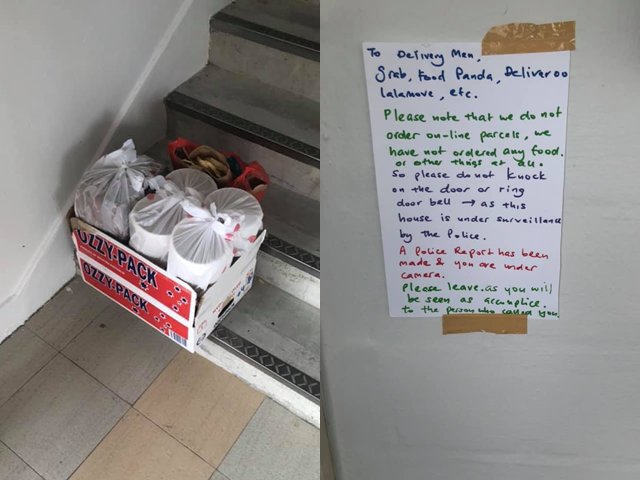 OZZY-PACK
OZZY-PACK
To Delivery Men,
Grab, Food Panda, Deliveroo
Lalamove, etc.
Please note that we do not
order on-line parcels, we
have not ordered any food.
or other things at all.
So please do not knock
on the door or ring
door bell → as this
house is under surveillance
by the Police.
A Police Report has been
made & you are under
camera.
Please leave. as you will
be seen as accomplice.
to the person who called you.